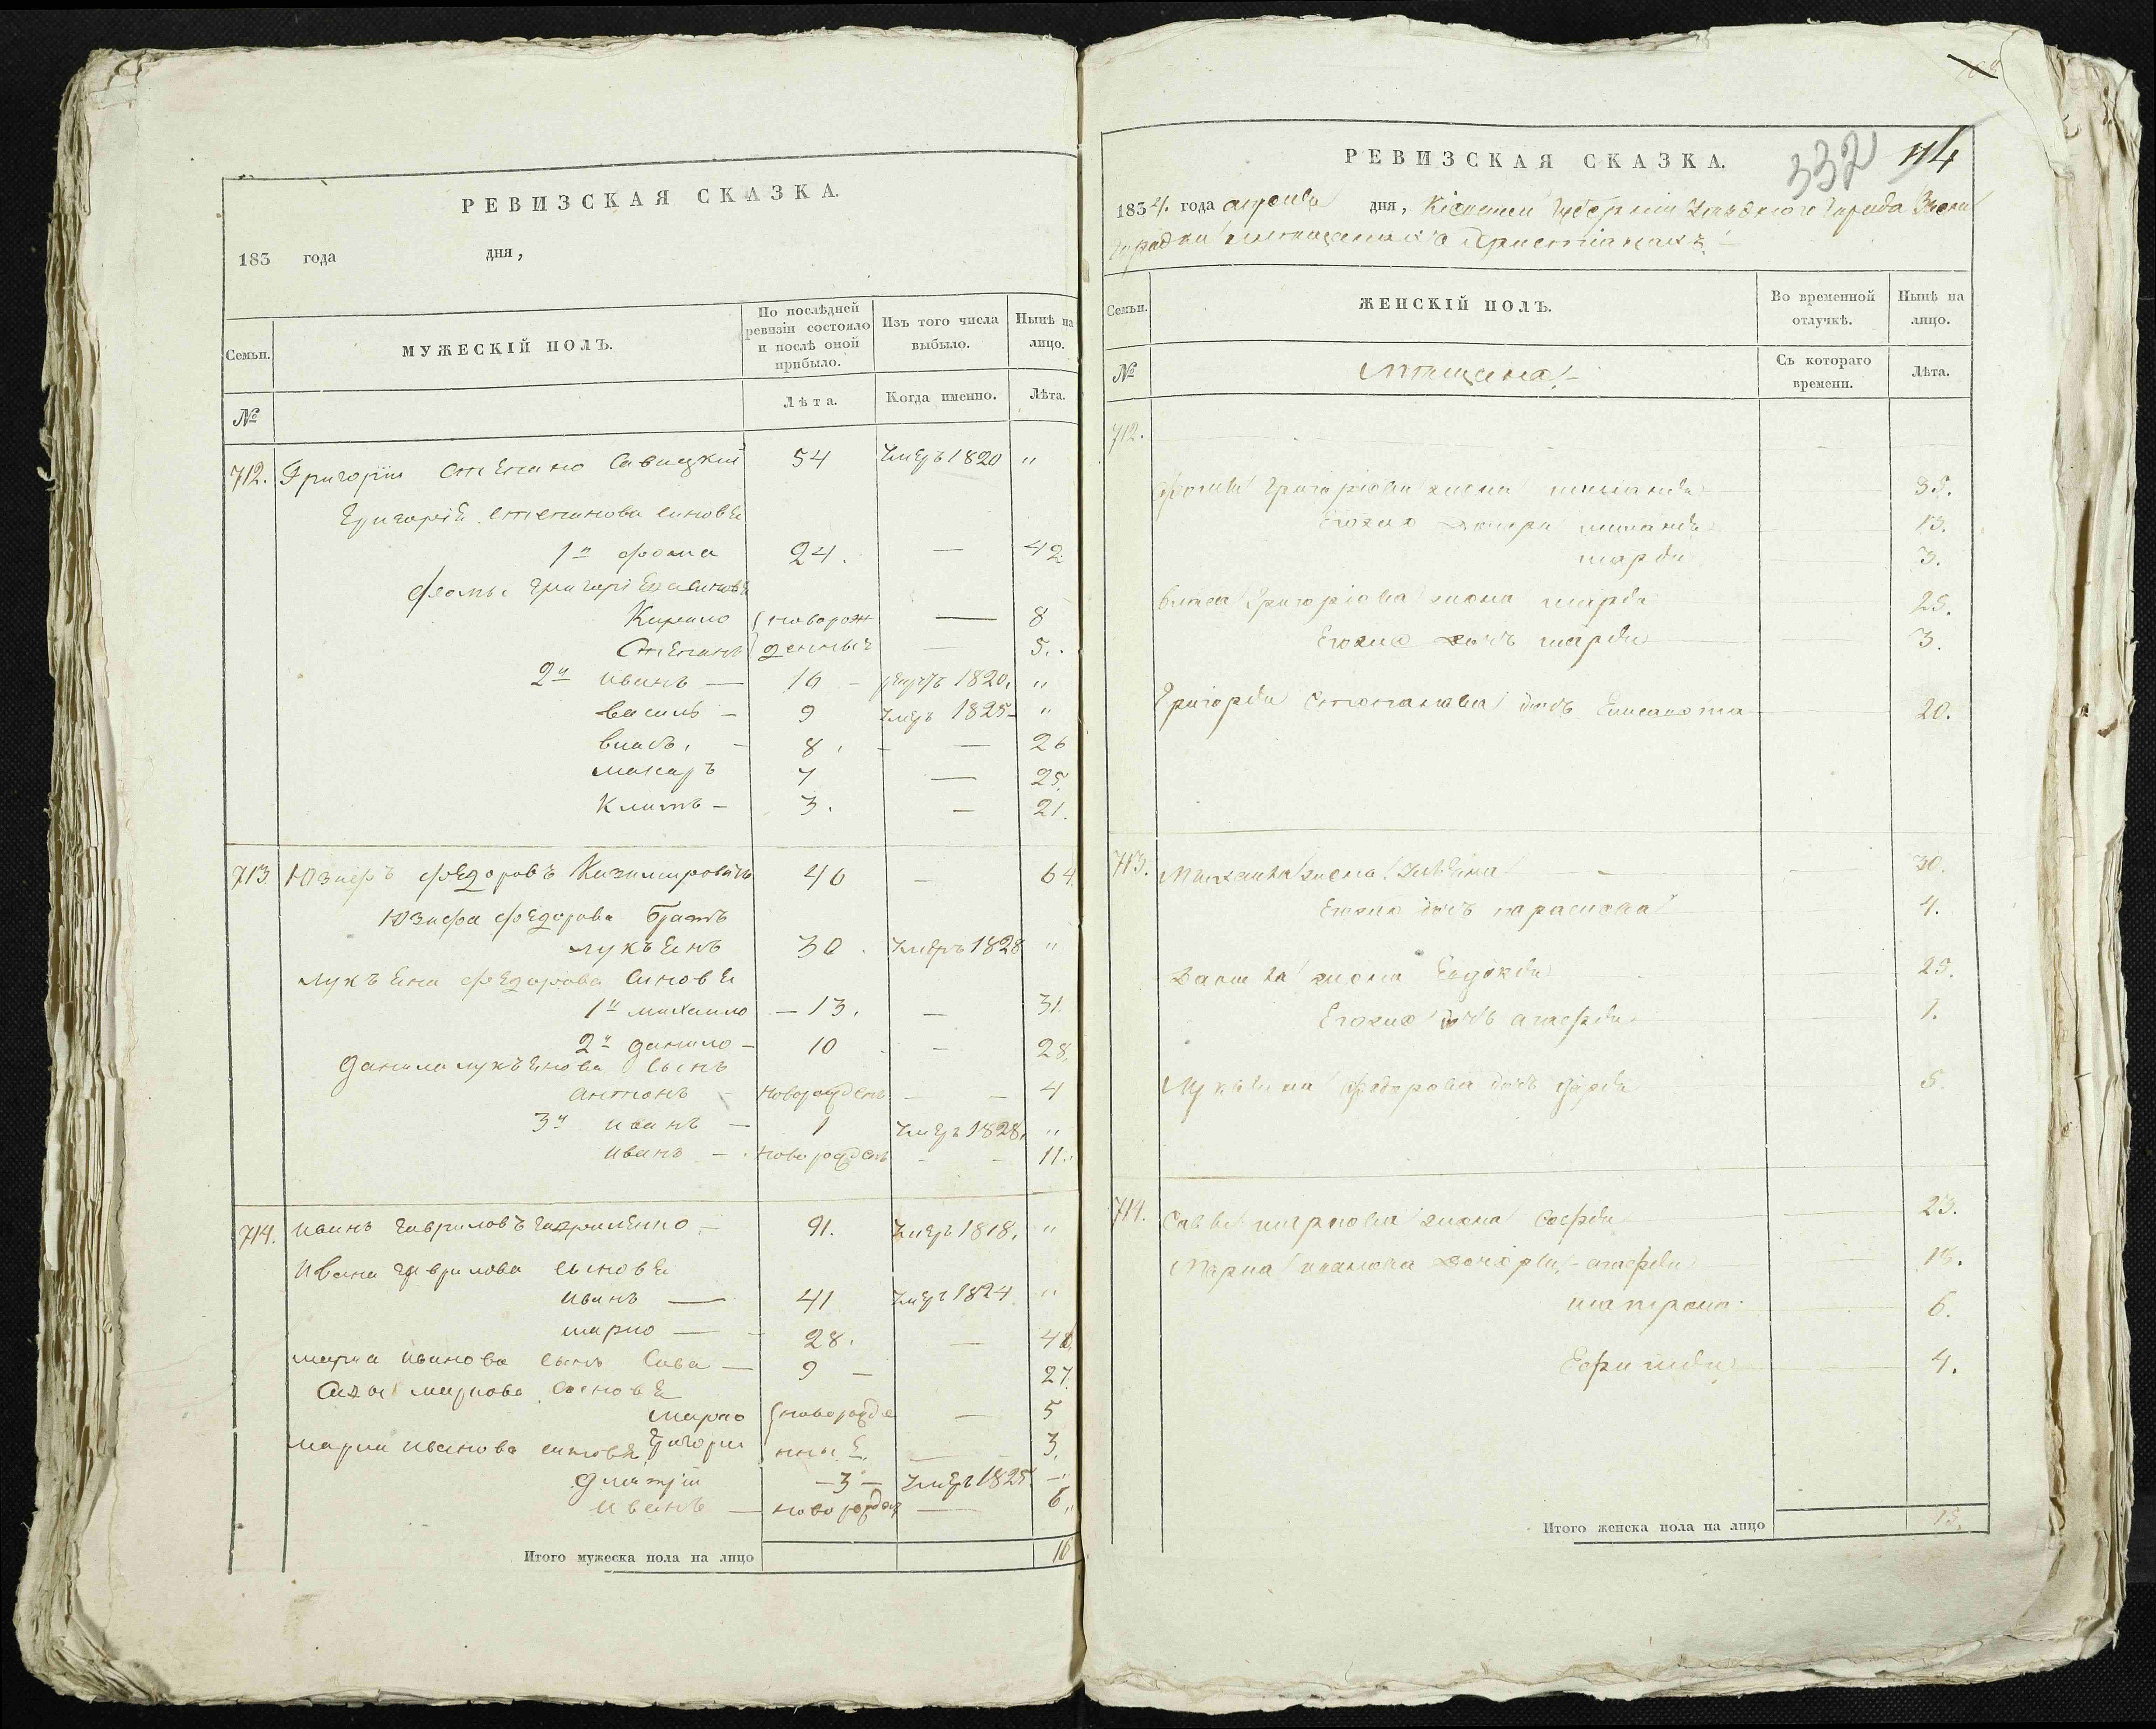 РЕВИЗСКАЯ СКАЗКА.
183 года дня,
Семьи. МУЖЕСКІЙ ПОЛЪ. По послѣдней ревизіи состояло и послѣ оной прибыло. Изъ того числа выбыло. Нынѣ на лицо.
№ Лѣта. Когда именно. Лѣта.
712. Григорій Степано Савицкій 54 умеръ 1820 "
Григорія Степанова синовья
1й Фома 24. — 42
Фомы Григоріева синовья
Кирило новорож — 8
Степанъ денныя — 5.
2й Иванъ — 16 — 1820. "
Василь — 9 умеръ 1825 — "
Власъ. — 8. — 26
Макаръ 7 — 25.
Климъ — 3. — 21.
713. Юзефъ Федоровъ Казимировичъ 46 — 64.
Юзефа Федорова братъ
Лукъянъ 30. умеръ 1828 "
Лукъяна Федорова синовья
1й Михаило — 13. — 31.
2й Данило — 10 — 28.
Данила Лукъянова сынъ
Антонъ — новорожденъ — 4
3й Иванъ — 1 умеръ 1828. "
Иванъ — новорожденъ — 11.
714. Иванъ Гавриловъ Гавриленко — 91. умеръ 1818. "
Ивана Гаврилова сыновья
Иванъ — 41 умеръ 1824 "
Марко — 28. — 46.
Марка Иванова сынъ Сава — 9 — 27.
Савы Маркова сыновья
Марко новорожде — 5
Марка Иванова синовья Григори нны — 3.
Дмитрій — 3 — умеръ 1825. — "
Иванъ — новорожден — 6.
Итого мужеска пола на лицо 16
332 114
РЕВИЗСКАЯ СКАЗКА.
1834. года апреля дня, Кіевской Губерніи уѣзднаго города Звени
городки мещанахъ Христіанахъ
Семьи. ЖЕНСКІЙ ПОЛЪ. Во временной отлучкѣ. Нынѣ на лицо.
№ Мещане Съ котораго времени. Лѣта.
712.
Фомы Григоріева жена 35.
Егожъ дочери 13.
Марфа 3.
Власа Григоріева жена Марфа 25.
Егожъ дочь Марфа 3.
Григорія Степанова дочь 20.
713. Михаила жена 30.
Егожъ дочь Параскова 4.
Данила жена Евдокія 25.
Егожъ дочь Агафія 1.
Лукъяна Федорова дочь 5.
714. Савы Маркова жена Софія 23.
Марка Иванова дочери, Агафія 13.
Матрона 6.
4.
Итого женска пола на лицо 15.